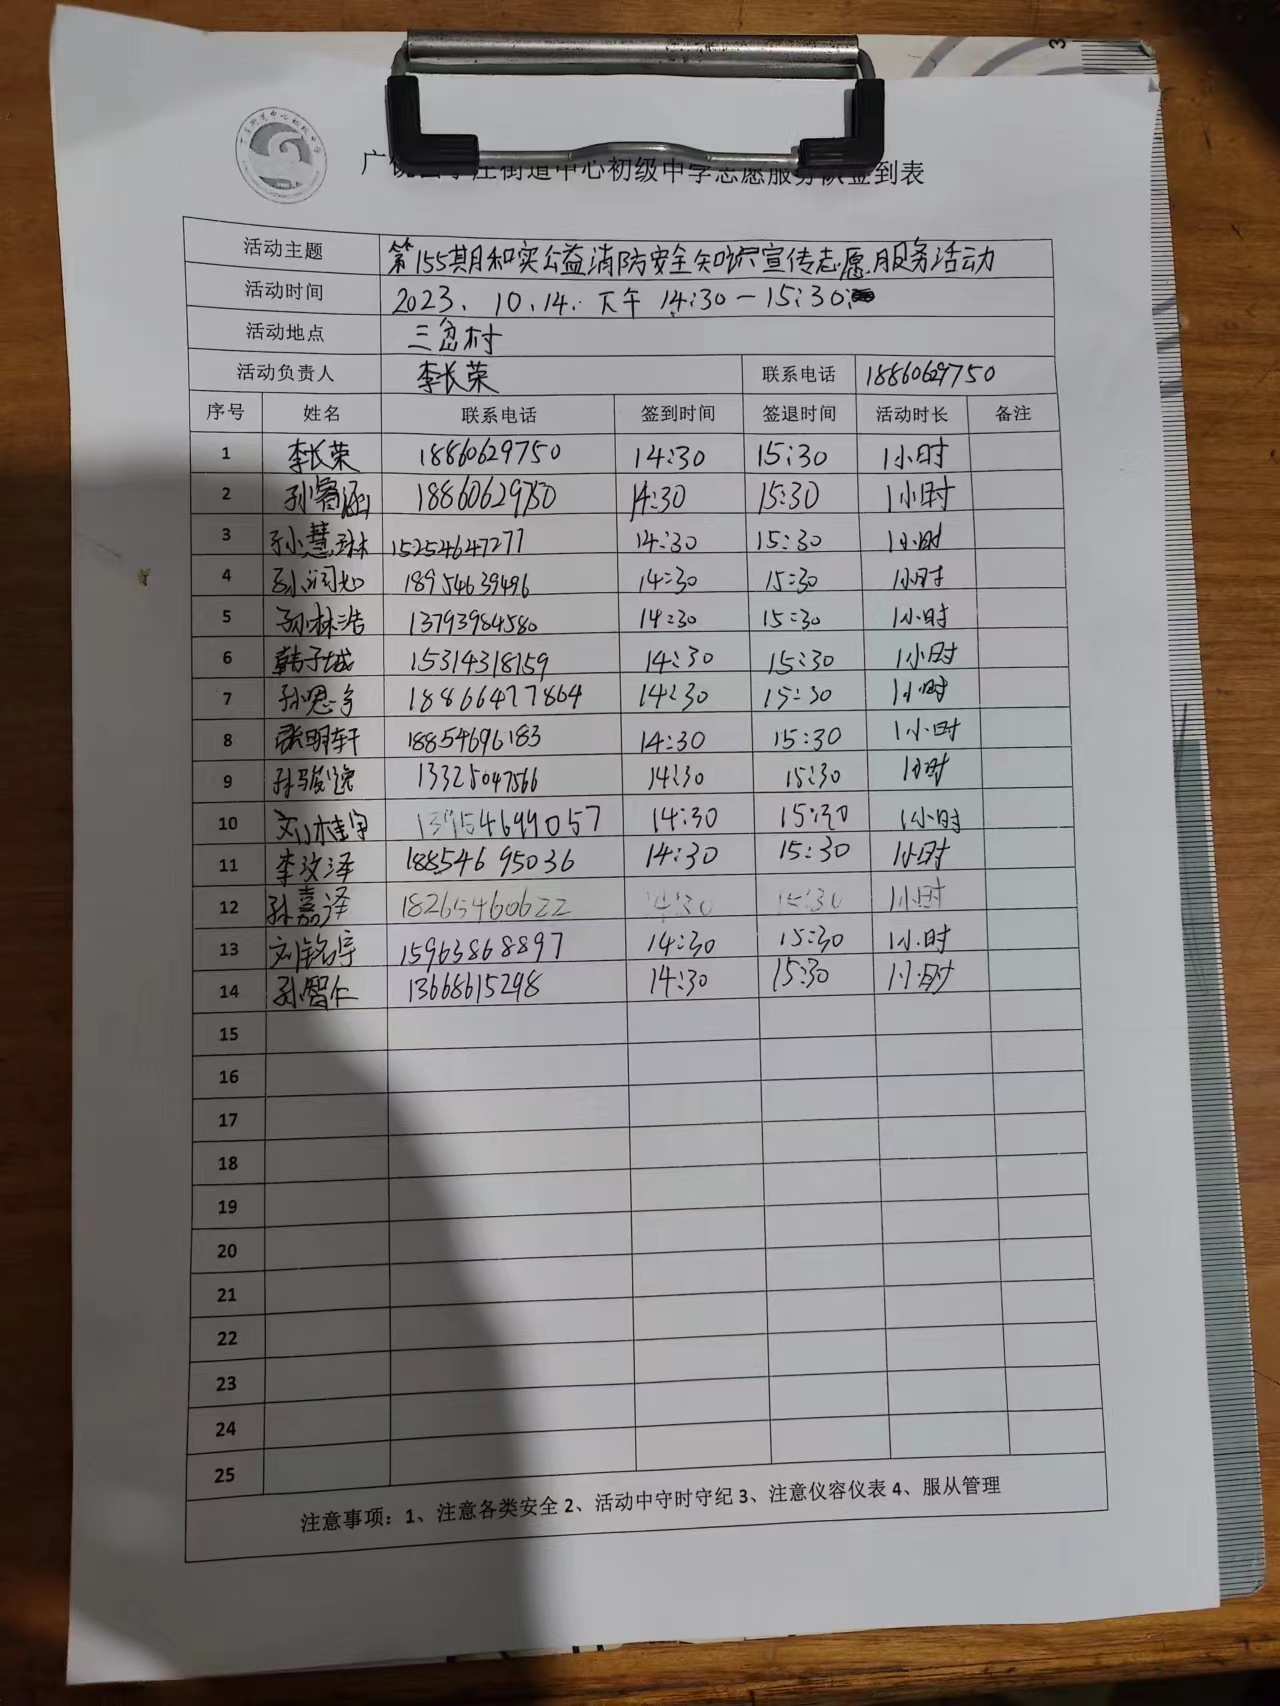 广饶县丁庄街道中心初级中学志愿服务队签到表
活动主题 第155期和实公益消防安全知识宣传志愿服务活动
活动时间 2023.10.14.下午 14:30-15:30
活动地点 三岔村
活动负责人 李长荣 联系电话 18860629750
序号 姓名 联系电话 签到时间 签退时间 活动时长 备注
1 李长荣 18860629750 14:30 15:30 1小时
2 孙睿涵 18860629750 14:30 15:30 1小时
3 孙慧琳 15254647277 14:30 15:30 1小时
4 孙润如 18954639496 14:30 15:30 1小时
5 孙林浩 13793984580 14:30 15:30 1小时
6 韩子城 15314318159 14:30 15:30 1小时
7 孙思宇 18866477864 14:30 15:30 1小时
8 张明轩 18854696183 14:30 15:30 1小时
9 孙骏逸 13325047566 14:30 15:30 1小时
10 刘桂宇 13954699057 14:30 15:30 1小时
11 李汶泽 18854695036 14:30 15:30 1小时
12 孙嘉泽 18265460622 14:30 15:30 1小时
13 刘铭宇 15963868897 14:30 15:30 1小时
14 孙智仁 13668615298 14:30 15:30 1小时
15
16
17
18
19
20
21
22
23
24
25
注意事项：1、注意各类安全 2、活动中守时守纪 3、注意仪容仪表 4、服从管理